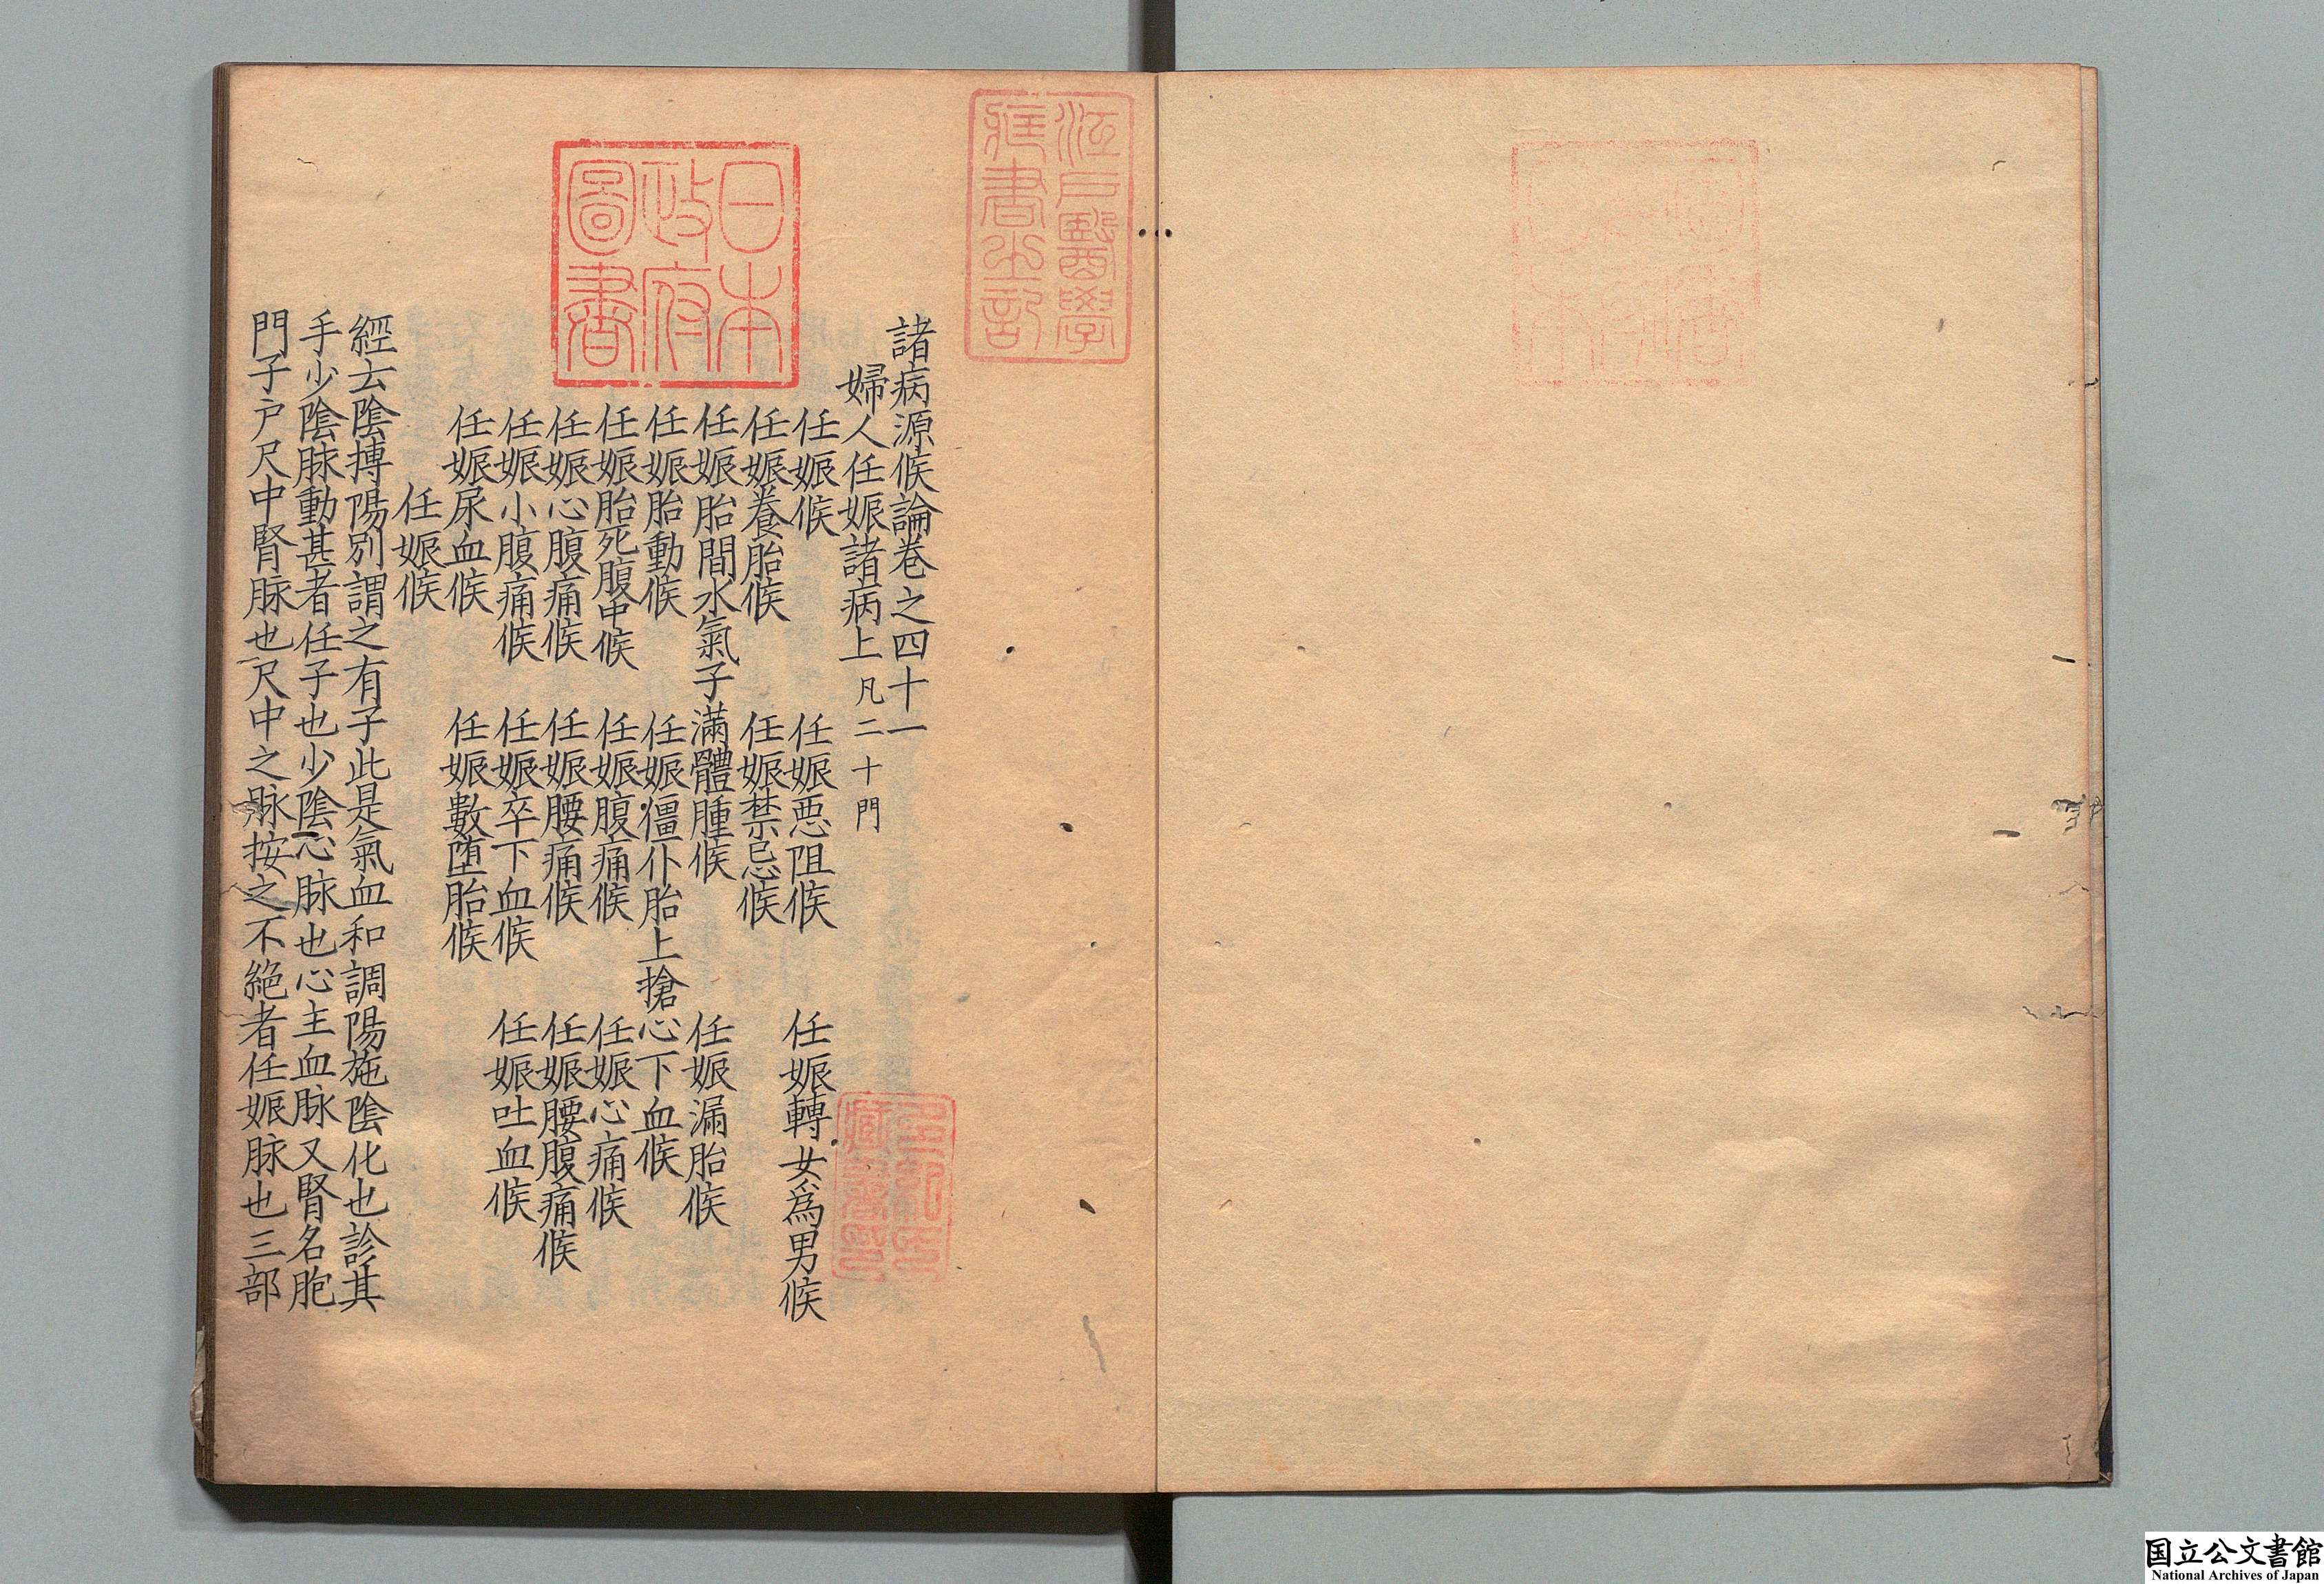 諸病源候論卷之四十一
婦人任娠諸病上 凡二十門
任娠候 任娠惡阻候 任娠轉女爲男候
任娠養胎候 任娠禁忌候
任娠胎間水氣子滿體腫候 任娠漏胎候
任娠胎動候 任娠僵仆胎上搶心下血候
任娠胎死腹中候 任娠腹痛候 任娠心痛候
任娠心腹痛候 任娠腰痛候 任娠腰腹痛候
任娠小腹痛候 任娠卒下血候 任娠吐血候
任娠尿血候 任娠數堕胎候
任娠候
經云陰搏陽別謂之有子此是氣血和調陽施陰化也診其
手少陰脉動甚者任子也少陰心脉也心主血脉又腎名胞
門子户尺中腎脉也尺中之脉按之不絶者任娠脉也三部
江戸醫學
藏書之記
日本
政府
圖書
国立公文書館
National Archives of Japan